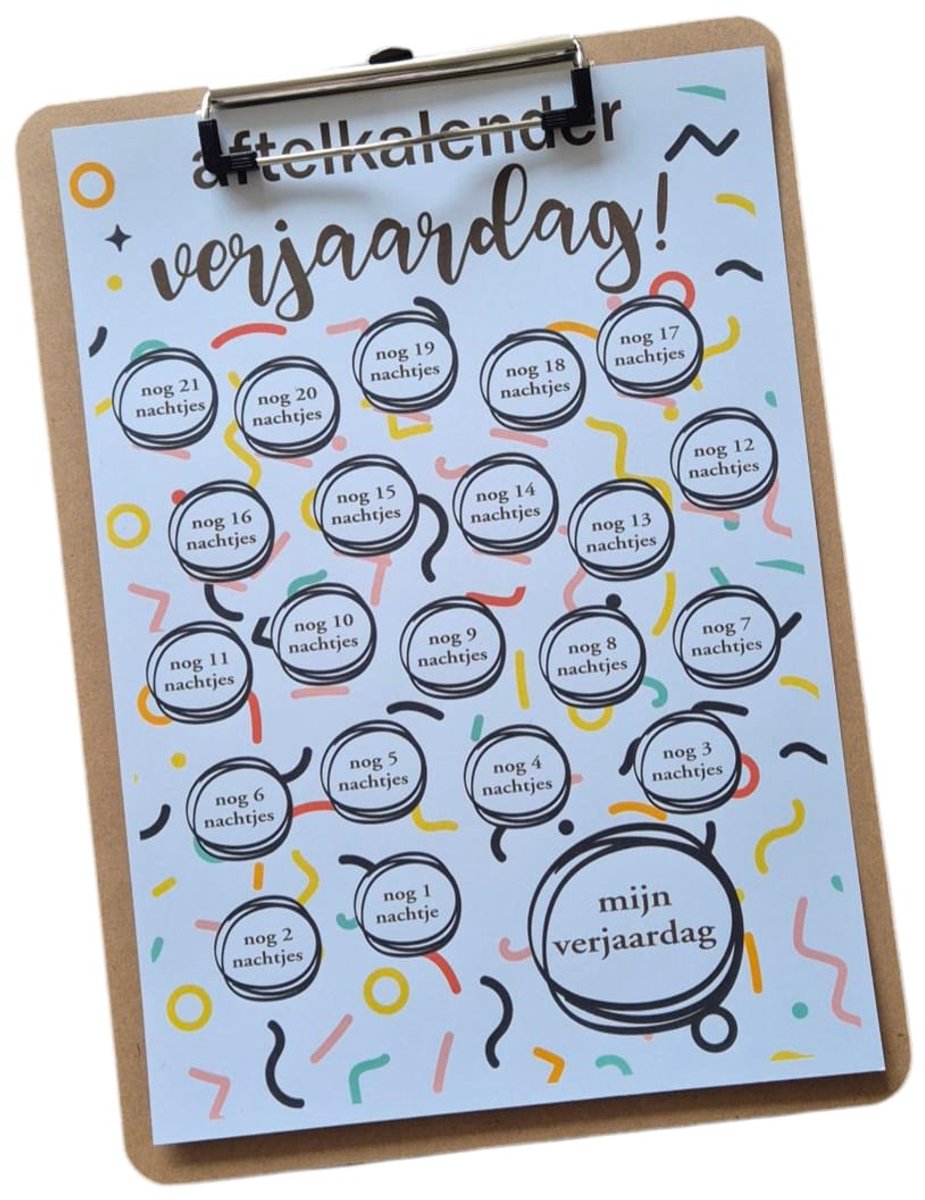 aftelkalender
verjaardag!
nog 21
nachtjes
nog 20
nachtjes
nog 19
nachtjes
nog 18
nachtjes
nog 17
nachtjes
nog 16
nachtjes
nog 15
nachtjes
nog 14
nachtjes
nog 13
nachtjes
nog 12
nachtjes
nog 11
nachtjes
nog 10
nachtjes
nog 9
nachtjes
nog 8
nachtjes
nog 7
nachtjes
nog 6
nachtjes
nog 5
nachtjes
nog 4
nachtjes
nog 3
nachtjes
nog 2
nachtjes
nog 1
nachtje
mijn
verjaardag